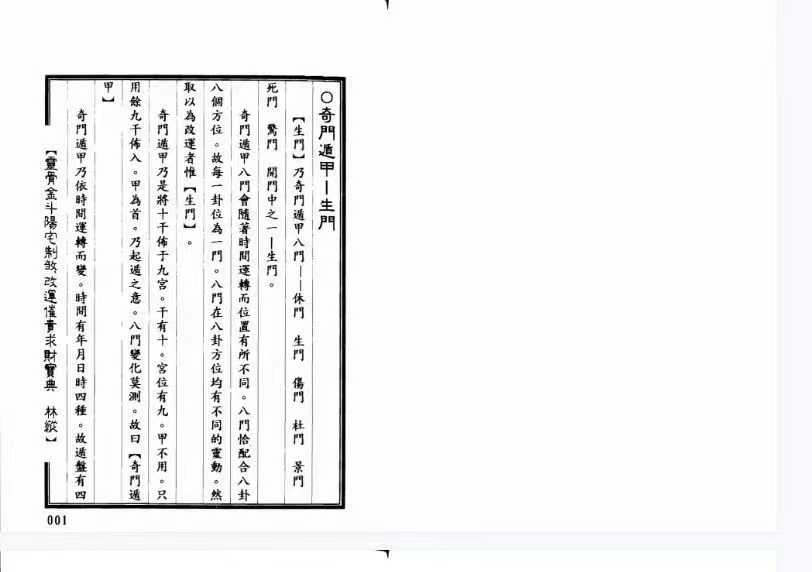 ○奇門遁甲—生門
【生門】乃奇門遁甲八門——休門 生門 傷門 杜門 景門
死門 驚門 開門中之一—生門。
奇門遁甲八門會隨著時間運轉而位置有所不同。八門恰配合八卦
八個方位。故每一卦位為一門。八門在八卦方位均有不同的靈動。然
取以為改運者惟【生門】。
奇門遁甲乃是將十干佈于九宮。干有十。宮位有九。甲不用。只
用餘九干佈入。甲為首。乃起遁之意。八門變化莫測。故曰【奇門遁
甲】
奇門遁甲乃依時間運轉而變。時間有年月日時四種。故遁盤有四
【靈骨金斗陽宅制煞改運催貴求財寶典 林縱】
001